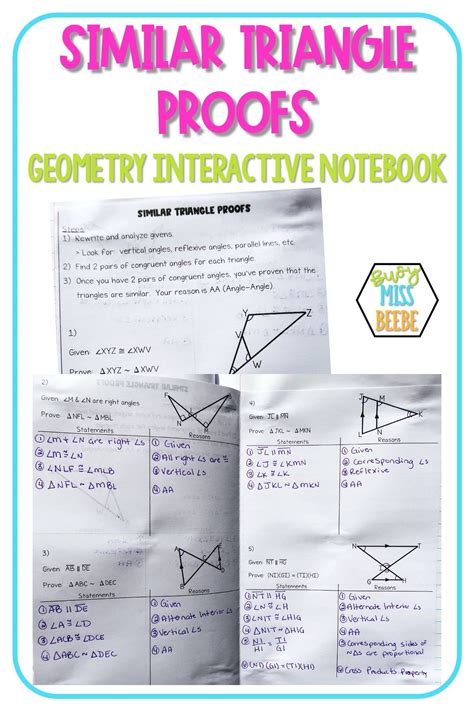 SIMILAR TRIANGLE
PROOFS
GEOMETRY INTERACTIVE NOTEBOOK
BUSY
MISS
BEEBE
SIMILAR TRIANGLE PROOFS
Steps
1) Rewrite and analyze givens.
> Look for vertical angles, reflexive angles, parallel lines, etc.
2) Find 2 pairs of congruent angles for each triangle.
3) Once you have 2 pairs of congruent angles, you've proven that the
triangles are similar. Your reason is AA (Angle-Angle).
1)
Given: ∠XYZ ≅ ∠XWV
Y Z
V
W
2)
Given: ∠M & ∠N are right angles
Prove: △NFL ~ △MBL
F B
N M
Statements Reasons
① ∠M + ∠N are right ∠s ① Given
② ∠M ≅ ∠N ② All right ∠s are ≅
③ ∠NLF ≅ ∠MLB ③ Vertical ∠s
④ △NFL ~ △MBL ④ AA
3)
Given: AB ∥ DE
Prove: △ABC ~ △DEC
Statements Reasons
① AB ∥ DE ① Given
② ∠A ≅ ∠D ② Alternate Interior ∠s
③ ∠ACB ≅ ∠DCE ③ Vertical ∠s
④ △ABC ~ △DEC ④ AA
4)
Prove: △JKL ~ △MKN
J M
K
L N
Statements Reasons
① JL ∥ MN ① Given
② ∠J ≅ ∠KMN ② Corresponding ∠s
③ ∠K ≅ ∠K ③ Reflexive
④ △JKL ~ △MKN ④ AA
5)
Given: NT ∥ HG
Prove: (NI)(GI) = (TI)(HI)
N T
G H
Statements Reasons
① NT ∥ HG ① Given
② ∠N ≅ ∠H ② Alternate Interior ∠s
③ Vertical ∠s
④ △NIT ~ △HIG ④ AA
⑤ NI/HI = TI/GI ⑤ Corresponding sides of
~△s are proportional
⑥ (NI)(GI) = (TI)(HI) ⑥ Cross Products Property